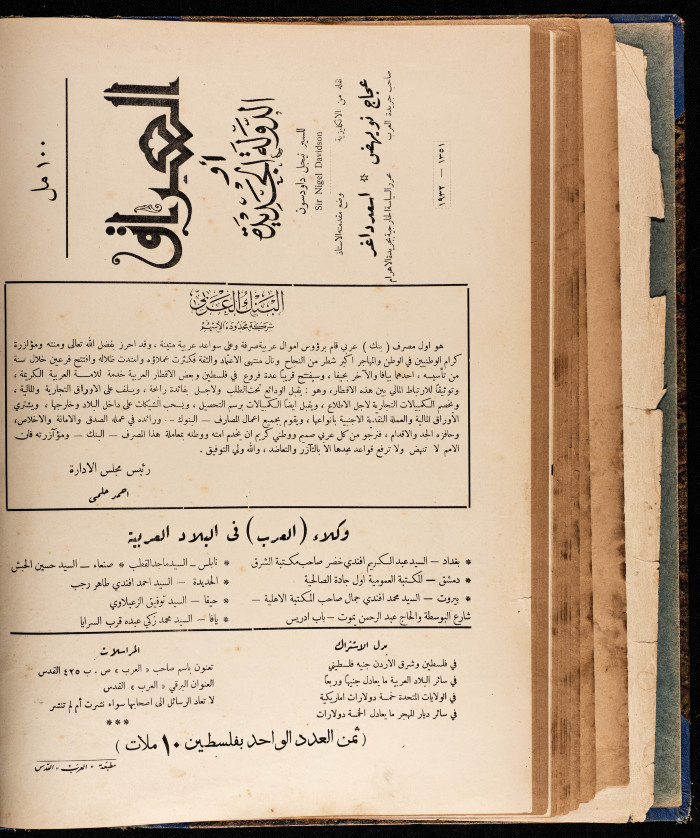 ١٠٠ مل
العراق
أو
الدولة الجديدة
للسير نيجل داودسون
Sir Nigel Davidson
نقله من الانكليزية
عجاج نويهض
صاحب جريدة العرب
وضع مقدمته الاستاذ
اسعد داغر
محرر السياسة الخارجية بجريدة الاهرام
١٣٥١ — ١٩٣٢
البنك العربي
شركة محدودة الاسهم
هو اول مصرف ( بنك ) عربي قام برؤوس اموال عربية صرفة وعلى سواعد عربية متينة ، وقد احرز بفضل الله تعالى ومنته ومؤازرة
كرام الوطنيين في الوطن والمهاجر اكبر شطر من النجاح ونال منتهى الاعتماد والثقة فكثرت عملاؤه وامتدت ظلاله وافتتح فرعين خلال سنة
من تأسيسه ، احدهما بيافا والآخر بحيفا ، وسيفتتح قريباً عدة فروع في فلسطين وبعض الاقطار العربية خدمة للامة العربية الكريمة ،
وتوثيقاً للارتباط المالي بين هذه الاقطار ، وهو : يقبل الودائع تحت الطلب ولاجل بفائدة رابحة ، ويسلف على الاوراق التجارية والمالية ،
ويخصم الكمبيالات التجارية لاجل الاطلاع ، ويقبل ايضاً الكمبيالات برسم التحصيل ، ويسحب الشيكات على داخل البلاد وخارجها ، ويشتري
الأوراق المالية والعملة النقدية الاجنبية بأنواعها ، ويقوم بجميع اعمال المصارف — البنوك — . ورائده في عمله الصدق والامانة والاخلاص،
وحافزه الجد والاقدام ، فنرجو من كل عربي صميم ووطني كريم ان يخدم امته ووطنه بمعاملة هذا المصرف — البنك — ومؤازرته فان
الامم لا تنهض ولا ترفع قواعد مجدها الا بالتآزر والتعاضد ، والله ولي التوفيق .
رئيس مجلس الادارة
احمد حلمي
وكلاء ( العرب ) في البلاد العربية
* بغداد — السيد عبد الكريم افندي خضر صاحب مكتبة الشرق
* دمشق — المكتبة العمومية اول جادة الصالحية
* بيروت — السيد محمد افندي جمال صاحب المكتبة الاهلية —
شارع البوسطة والحاج عبد الرحمن يموت — باب ادريس
* نابلس — السيد ماجد القطب * صنعاء — السيد حسين الحبش
* الحديدة — السيد احمد افندي طاهر رجب
* حيفا — السيد توفيق الزعبلاوي
* يافا — السيد محمد زكي عبده قرب السرايا
بدل الاشتراك
في فلسطين وشرق الاردن جنيه فلسطيني
في سائر البلاد العربية ما يعادل جنيهاً وربعاً
في الولايات المتحدة خمسة دولارات اميركية
في سائر ديار المهجر ما يعادل الخمسة دولارات
المراسلات
تعنون باسم صاحب « العرب » ص . ب ٤٢٥ القدس
العنوان البرقي « العرب » القدس
لا تعاد الرسائل الى اصحابها سواء نشرت أم لم تنشر
***
( ثمن العدد الواحد بفلسطين ١٠ ملات )
مطبعة * العرب * القدس